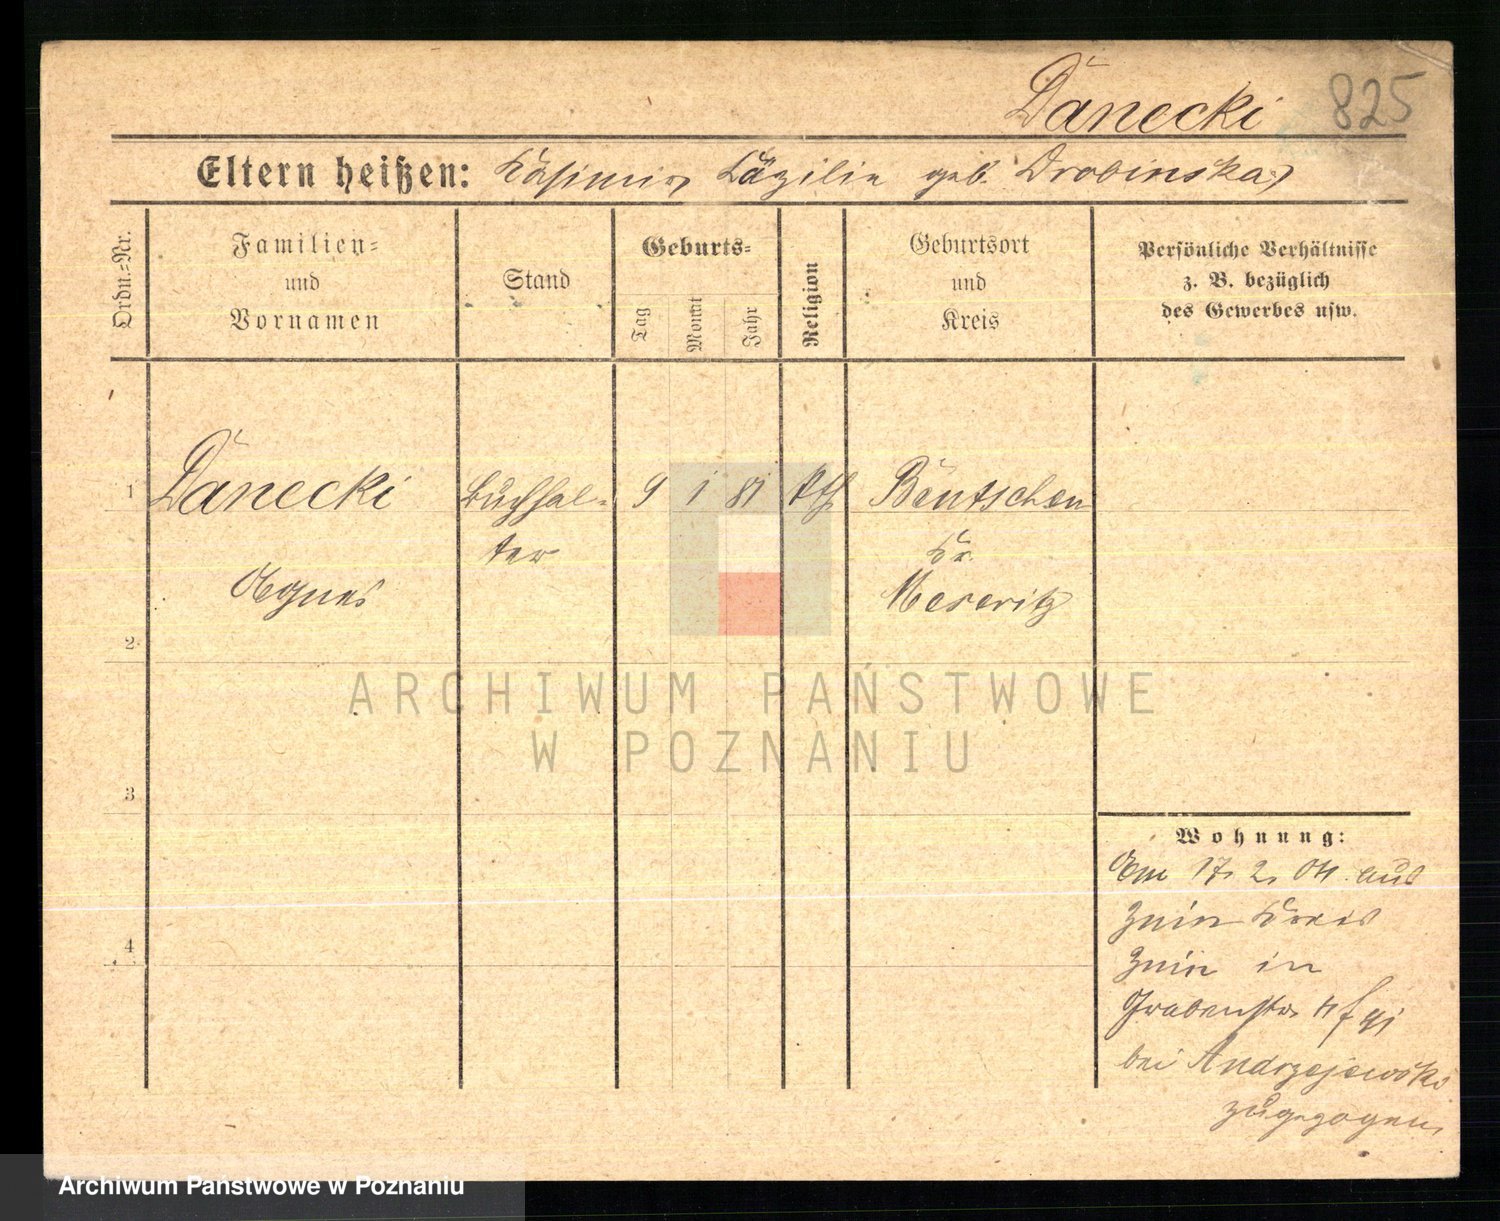 Danecki 825
Eltern heißen: Kasimir Käzilie geb. Drobinska
Ordn.-Nr.
Familien-
und
Vornamen
Stand
Geburts-
Tag
Monat
Jahr
Religion
Geburtsort
und
Kreis
Persönliche Verhältnisse
z. B. bezüglich
des Gewerbes usw.
1 Danecki Buchhal- 9 1 81 kth Bentschen
ter Kr.
Agnes Meseritz
2
ARCHIWUM PAŃSTWOWE
W POZNANIU
3
Wohnung:
Am 17. 2. 04. aus
Znin Kreis
4
Znin in
Grabenstr.
bei Andrzejewski
zugezogen
Archiwum Państwowe w Poznaniu